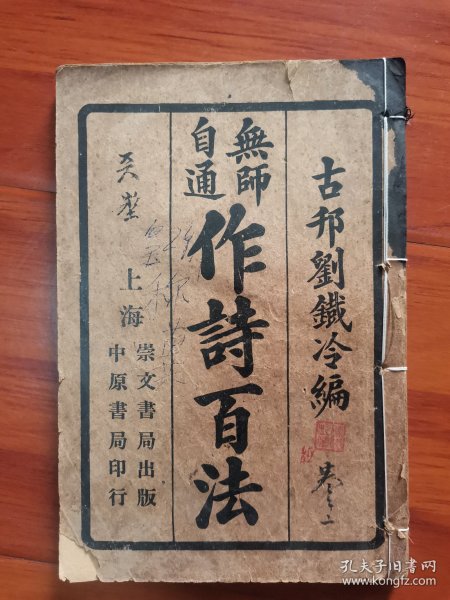 古邦劉鐵冷編
無師自通
作詩百法
上海
崇文書局出版
中原書局印行
卷之一
孔夫子旧书网
www.kongfz.com